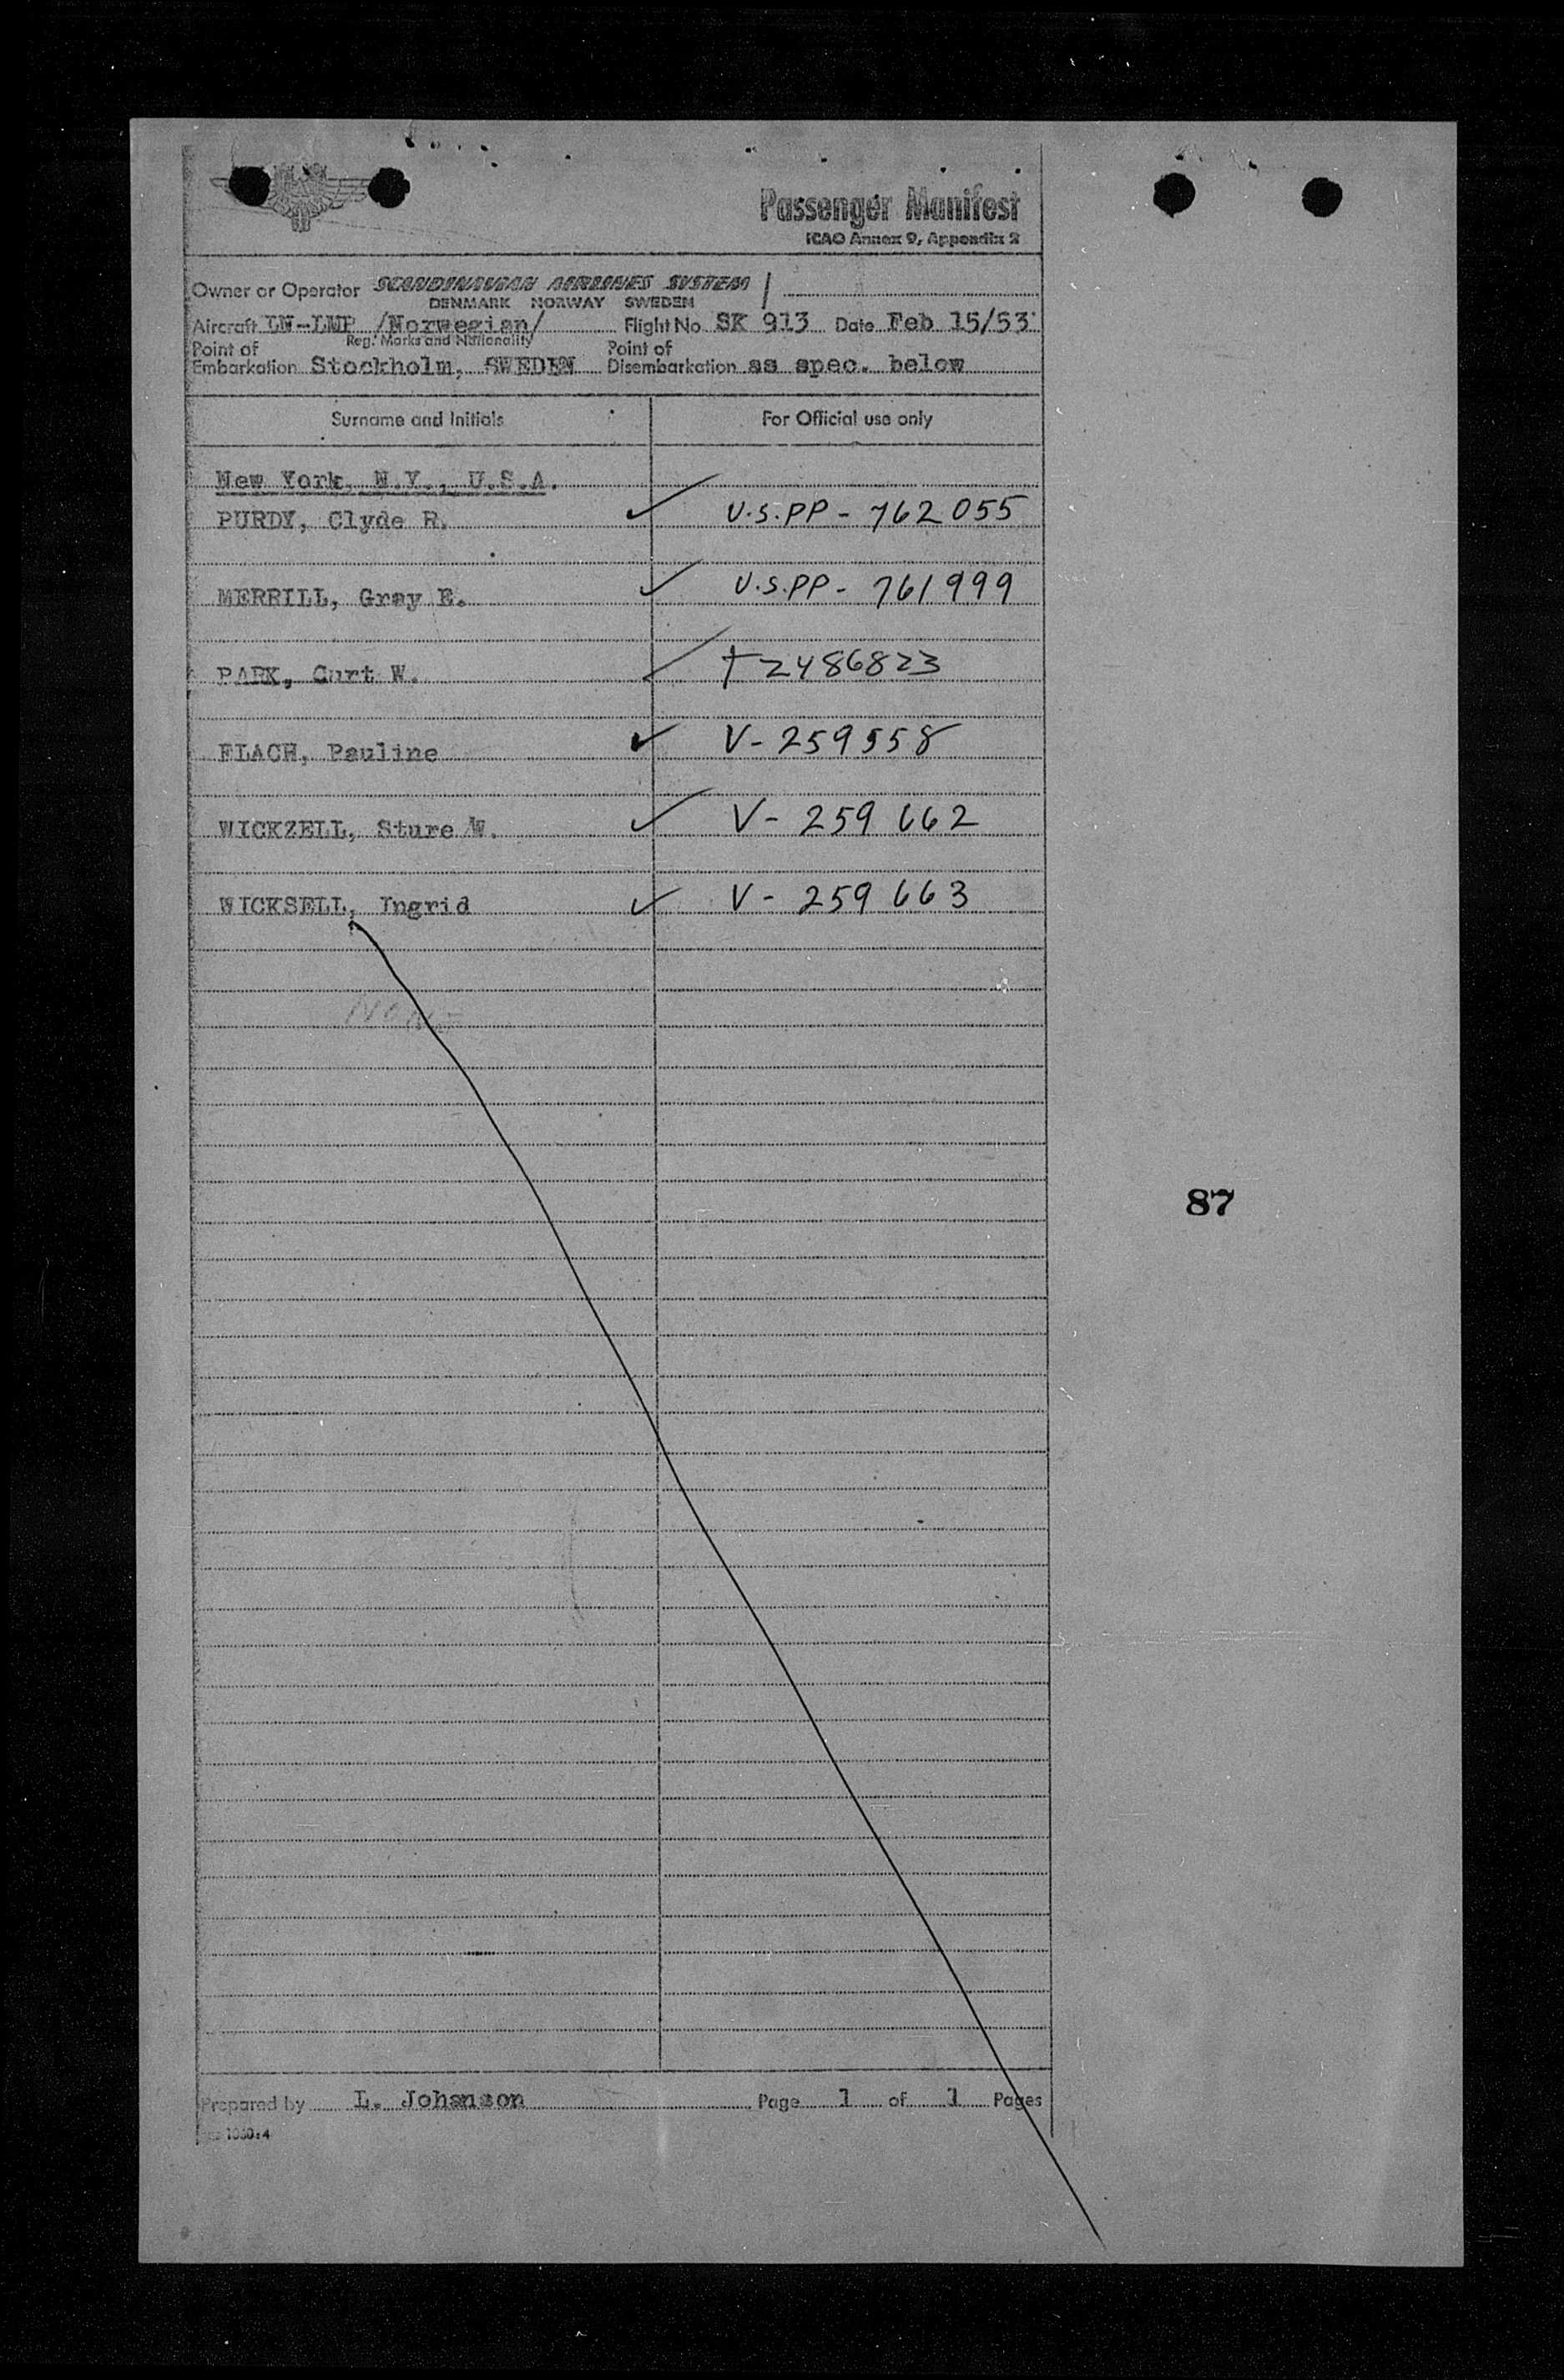 Passenger Manifest
ICAO Annex 9, Appendix 2
Owner or Operator SCANDINAVIAN AIRLINES SYSTEM
DENMARK NORWAY SWEDEN
Aircraft LN-LMP /Norwegian/ Flight No SK 913 Date Feb 15/53
Reg. Marks and Nationality
Point of Embarkation Stockholm, SWEDEN Point of Disembarkation as spec. below
Surname and Initials For Official use only
New York, N.Y., U.S.A.
PURDY, Clyde R. ✓ U.S.PP - 762055
MERRILL, Gray E. ✓ U.S.PP - 761999
PARK, Curt W. ✓ T2486823
FLACH, Pauline ✓ V-259558
WICKZELL, Sture W. ✓ V-259 662
WICKSELL, Ingrid ✓ V-259 663
NONE
87
Prepared by L. Johanson Page 1 of 1 Pages